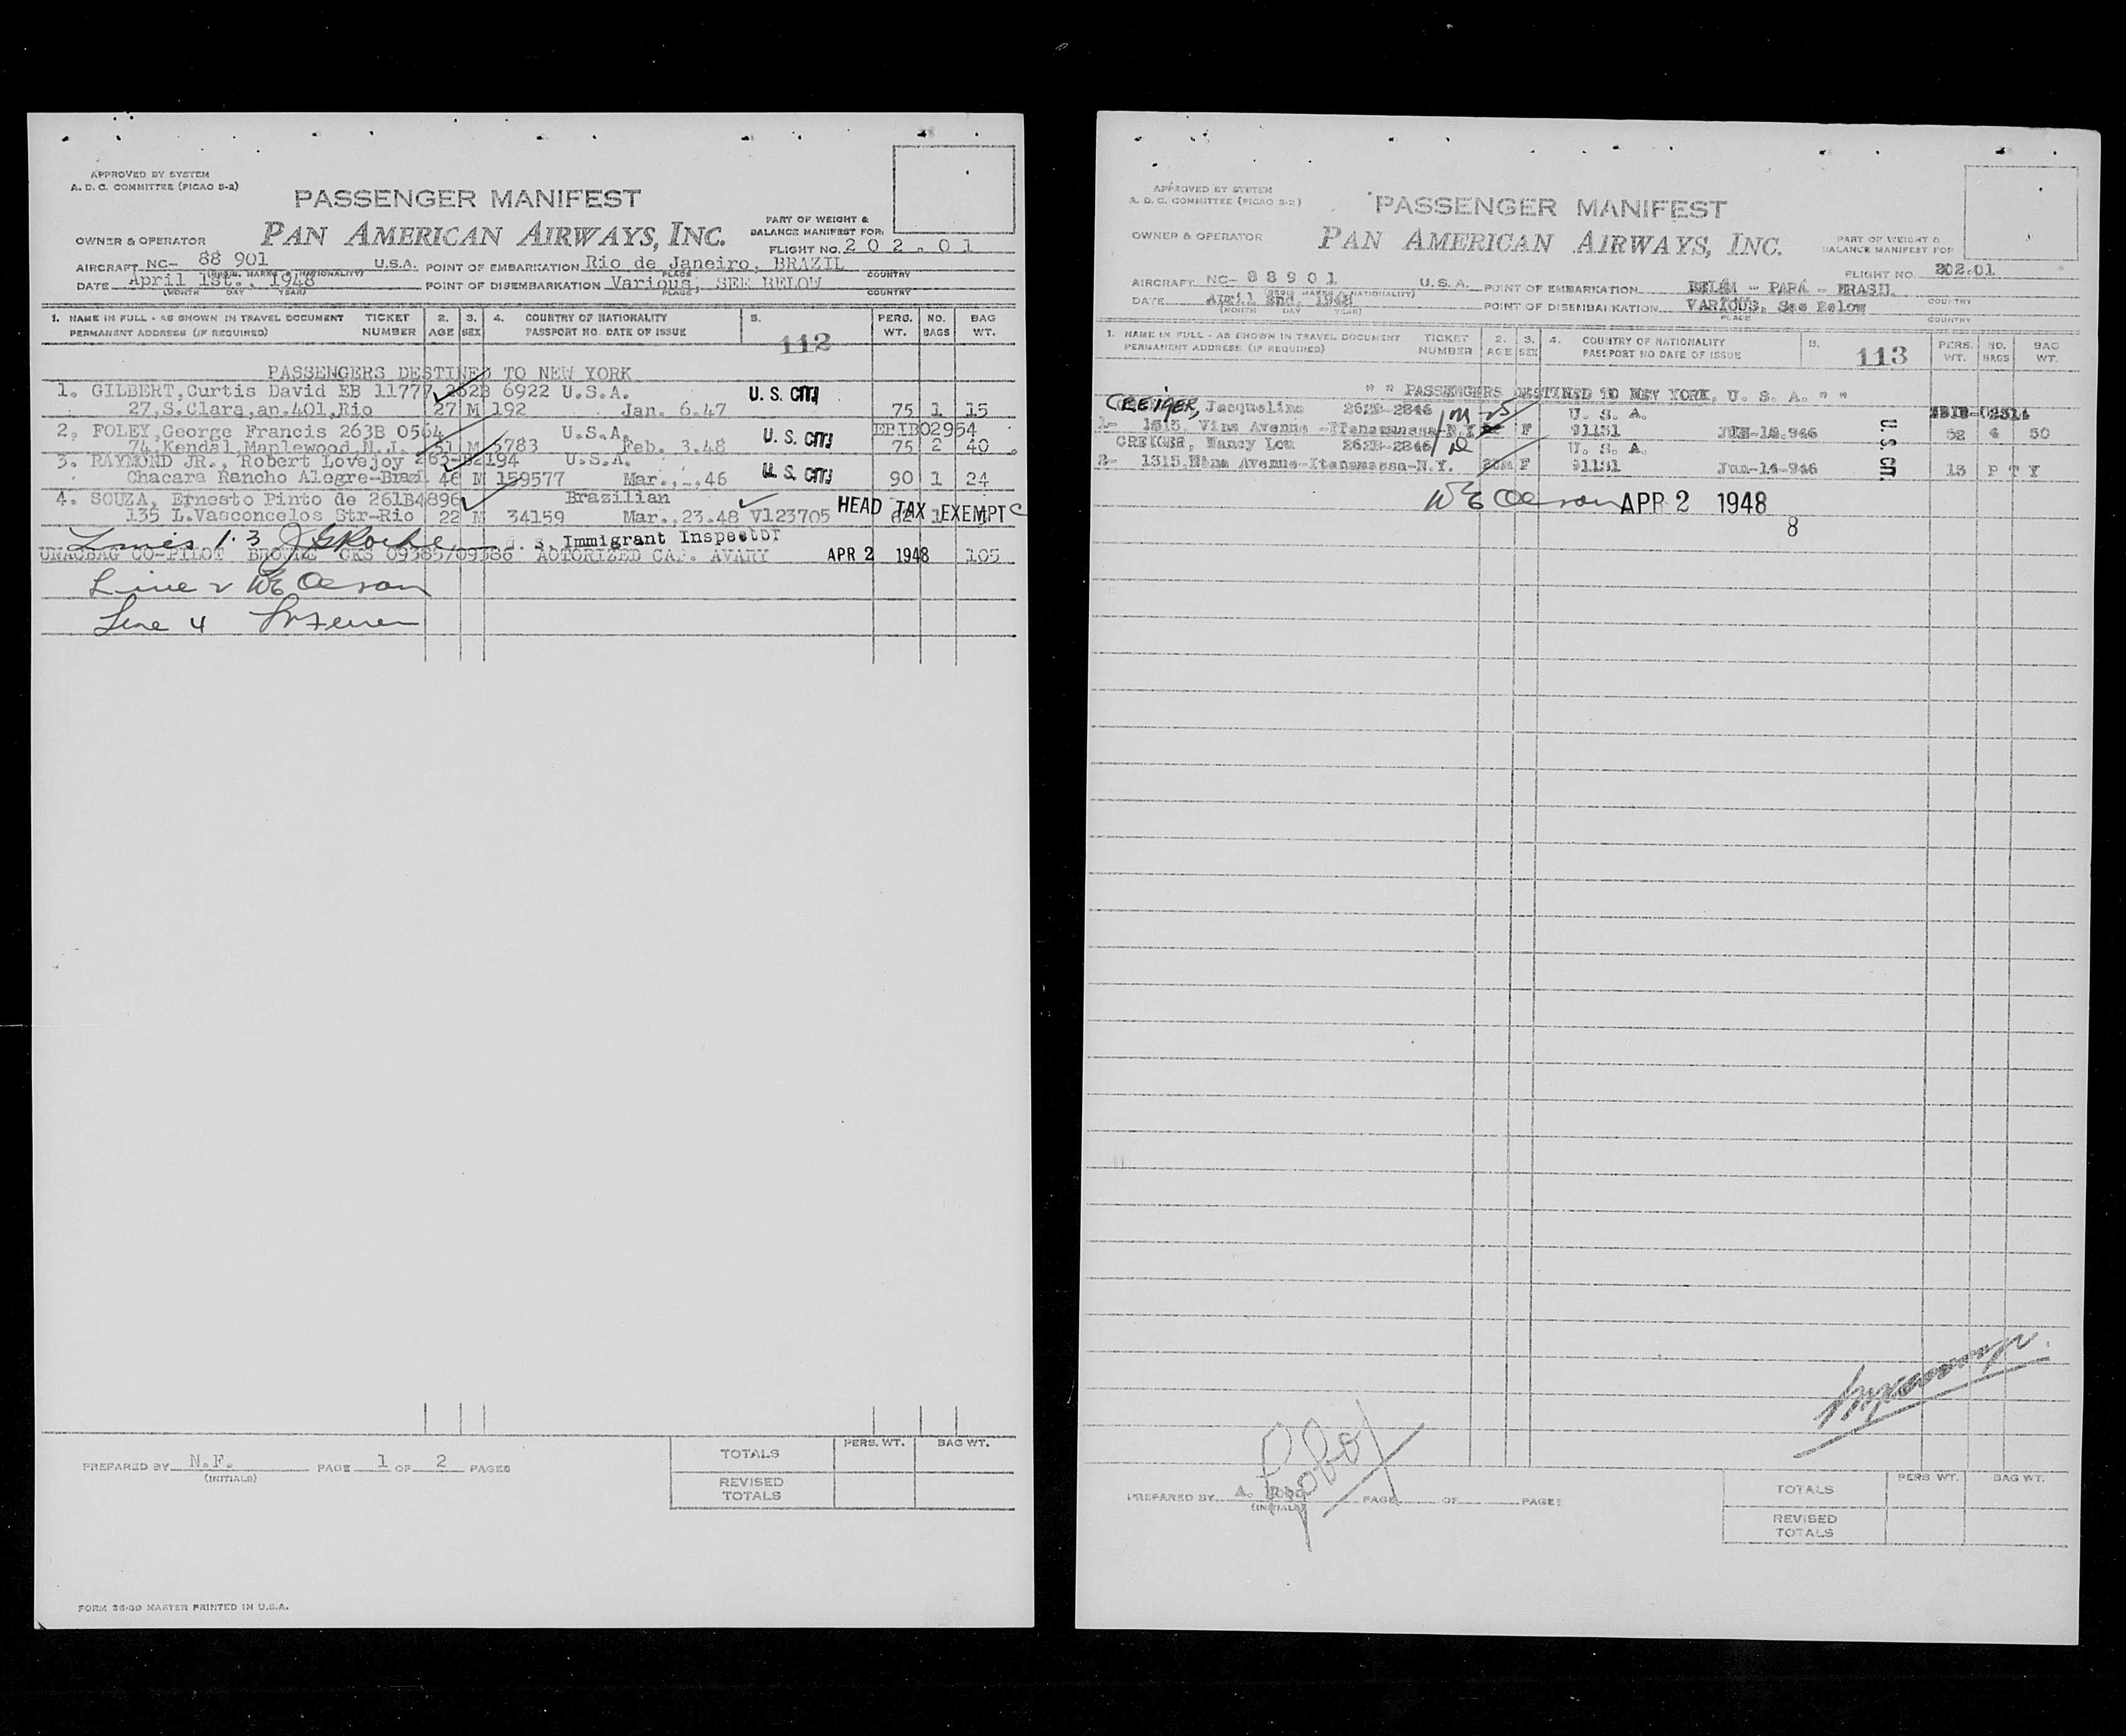 APPROVED BY SYSTEM
A. D. C. COMMITTEE (PICAO S-2)
PASSENGER MANIFEST
PAN AMERICAN AIRWAYS, INC.
PART OF WEIGHT &
BALANCE MANIFEST FOR:
OWNER & OPERATOR
FLIGHT NO. 202.01
AIRCRAFT NC- 88 901 U.S.A. POINT OF EMBARKATION Rio de Janeiro, BRAZIL
(REGIS. MARKS & NATIONALITY) PLACE COUNTRY
DATE April 1st., 1948 POINT OF DISEMBARKATION Various, SEE BELOW
(MONTH DAY YEAR) PLACE COUNTRY
1. NAME IN FULL - AS SHOWN IN TRAVEL DOCUMENT TICKET 2. 3. 4. COUNTRY OF NATIONALITY 5. PERS. NO. BAG
PERMANENT ADDRESS (IF REQUIRED) NUMBER AGE SEX PASSPORT NO. DATE OF ISSUE WT. BAGS WT.
112
PASSENGERS DESTINED TO NEW YORK
1. GILBERT, Curtis David EB 11777 262B 6922 U.S.A. U. S. CIT
27,S.Clara,ap.401,Rio 27 M 192 Jan. 6.47 75 1 15
2, FOLEY,George Francis 263B 0564 U.S.A. U. S. CIT EPIB02954
74,Kendal,Maplewood,N.J. 51 M 5783 Feb. 3.48 75 2 40
3. RAYMOND JR., Robert Lovejoy 263-B2194 U.S.A. U. S. CIT
Chacara Rancho Alegre-Brazi 46 M 159577 Mar.,-.46 90 1 24
4. SOUZA, Ernesto Pinto de 261B4896 Brazilian HEAD TAX EXEMPT
135 L.Vasconcelos Str-Rio 22 M 34159 Mar.,23.48 V123705 1
Lines 1.3 J G Roche U. S. Immigrant Inspector
UNACBAG CO-PILOT BROWNE CKS 09385/09386 AOTORIZED CAP. AVARY APR 2 1948 105
Line 2 WE Oleson
Line 4
PREPARED BY N.F. PAGE 1 OF 2 PAGES
(INITIALS)
PERS. WT. BAG WT.
TOTALS
REVISED
TOTALS
FORM 36-80 MASTER PRINTED IN U.S.A.
APPROVED BY SYSTEM
A. D. C. COMMITTEE (PICAO S-2)
PASSENGER MANIFEST
PAN AMERICAN AIRWAYS, INC.
OWNER & OPERATOR
PART OF WEIGHT &
BALANCE MANIFEST FOR
FLIGHT NO. 202.01
AIRCRAFT NC- 88901 U.S.A. POINT OF EMBARKATION BELÉM - PARÁ - BRASIL
(REGIS MARKS & NATIONALITY) COUNTRY
DATE April 2nd. 1948 POINT OF DISEMBARKATION VARIOUS, See Below
(MONTH DAY YEAR) PLACE COUNTRY
1. NAME IN FULL - AS SHOWN IN TRAVEL DOCUMENT TICKET 2. 3. 4. COUNTRY OF NATIONALITY 5. PERS. NO. BAG
PERMANENT ADDRESS (IF REQUIRED) NUMBER AGE SEX PASSPORT NO DATE OF ISSUE WT. BAGS WT.
113
" " PASSENGERS DESTINED TO NEW YORK, U. S. A. " "
CREIGER, Jacqueline 262B-2846 M 25 U. S. A.
1- 1315, Vine Avenue N.Y. F 91131 946 52 4 50
CREIGER, Nancy Lou 262B-2846 U. S. A.
2- 1315, Avenue N.Y. F 91131 Jun-14-946 13 P T Y
U.S. CIT.
WE Oleson APR 2 1948
8
Lobo
PREPARED BY A. Lobo PAGE OF PAGES
(INITIALS)
PERS WT. BAG WT.
TOTALS
REVISED
TOTALS